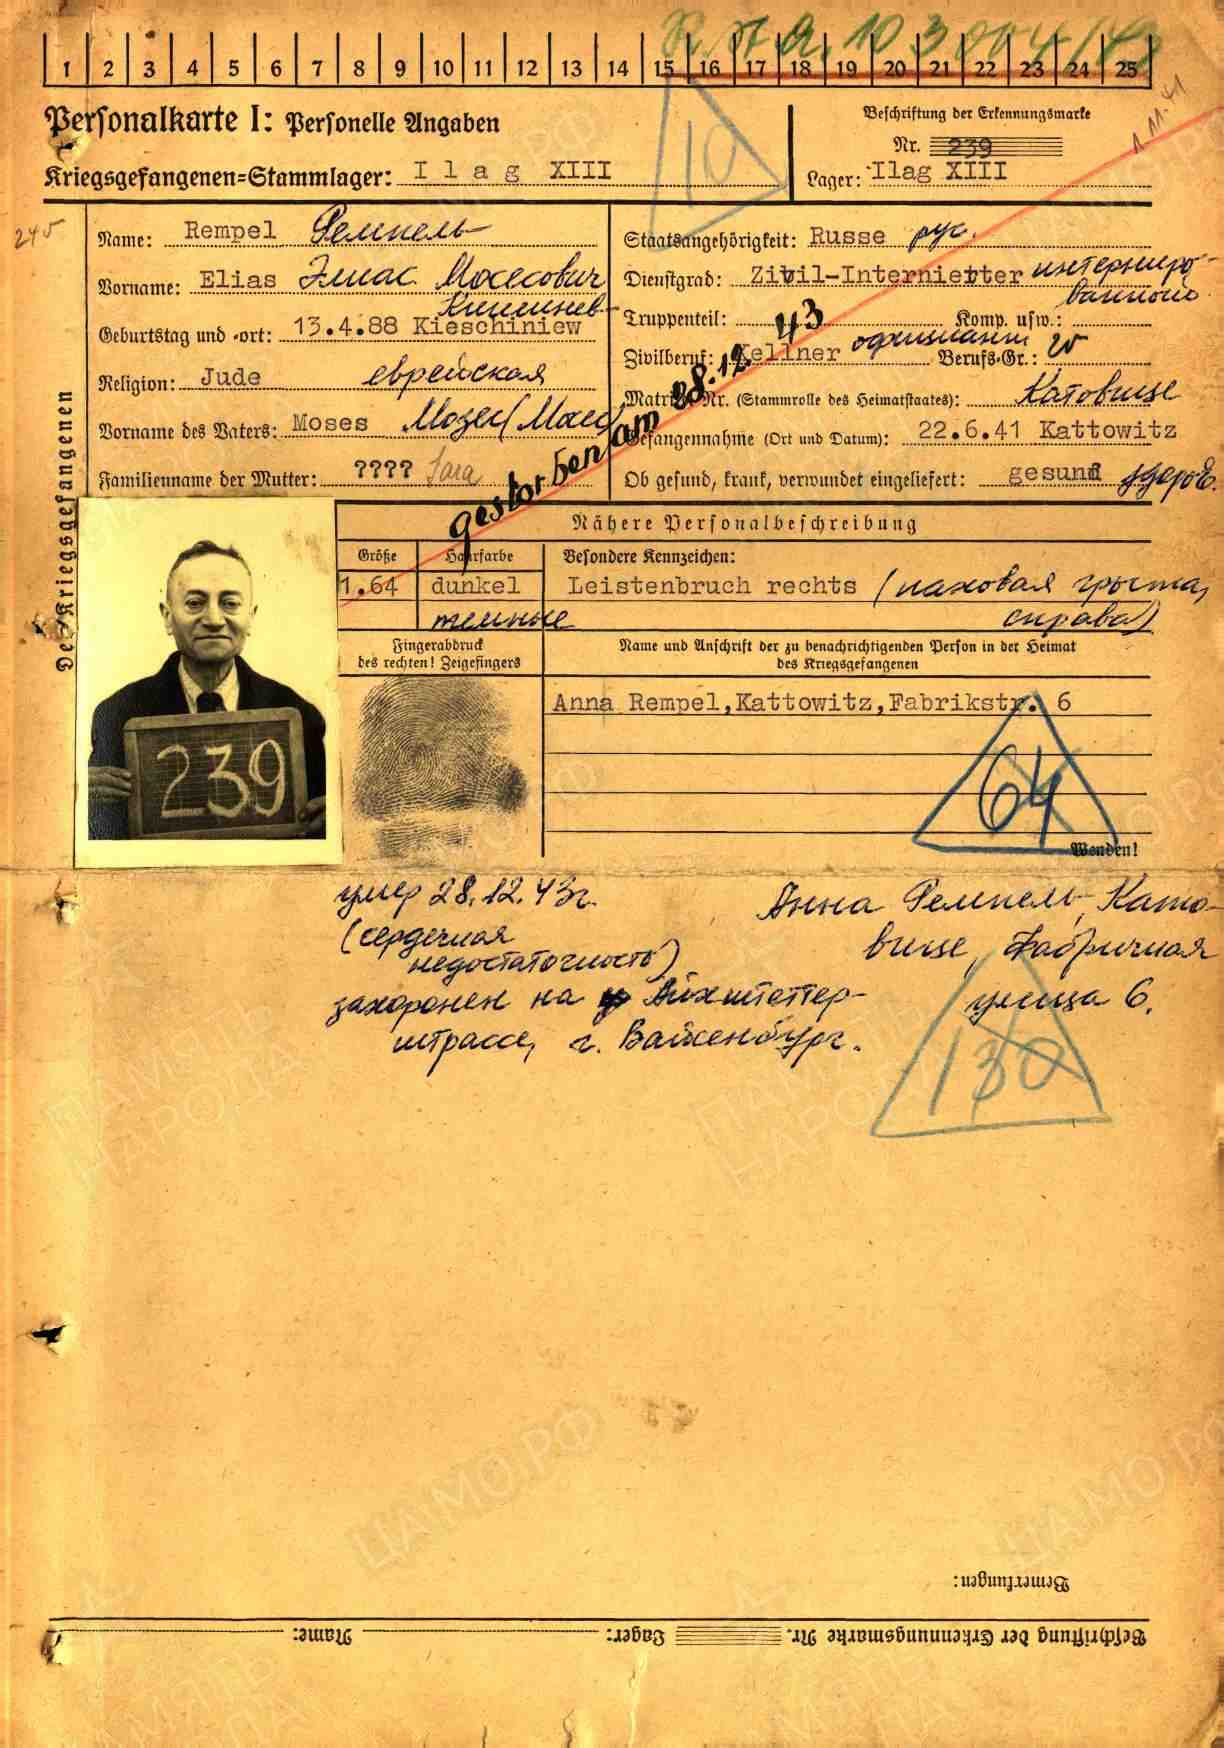 1 2 3 4 5 6 7 8 9 10 11 12 13 14 15 16 17 18 19 20 21 22 23 24 25
Personalkarte I: Personelle Angaben
Beschriftung der Erkennungsmarke
Nr. 239
Kriegsgefangenen=Stammlager: Ilag XIII
Lager: Ilag XIII
10
Des Kriegsgefangenen
Name: Rempel Ремпель
Vorname: Elias Элиас Мосесович
Кишинев
Geburtstag und -ort: 13.4.88 Kieschiniew
Religion: Jude еврейская
Vorname des Vaters: Moses Мозес (Мосес
Familienname der Mutter: ???? Sara
Staatsangehörigkeit: Russe рус.
Dienstgrad: Zivil-Internierter интерниро-
ванного
Truppenteil: Komp. usw.:
Zivilberuf: Kellner официант Berufs-Gr.: W
Matrikel Nr. (Stammrolle des Heimatstaates): Катовице
Gefangennahme (Ort und Datum): 22.6.41 Kattowitz
Ob gesund, krank, verwundet eingeliefert: gesund здоров.
gestorben am 28.12.43
Nähere Personalbeschreibung
Größe Haarfarbe Besondere Kennzeichen:
1.64 dunkel Leistenbruch rechts (паховая грыжа,
темные справа)
Fingerabdruck
des rechten! Zeigefingers
Name und Anschrift der zu benachrichtigenden Person in der Heimat
des Kriegsgefangenen
Anna Rempel,Kattowitz,Fabrikstr. 6
239
64
Wenden!
умер 28.12.43г.
(сердечная
недостаточность)
захоронен на Айхштеттер-
штрассе, г. Вайсенбург.
Анна Ремпель, Като-
вице, Фабричная
улица 6.
130
Bemerkungen:
Beschriftung der Erkennungsmarke Nr. Lager: Name: